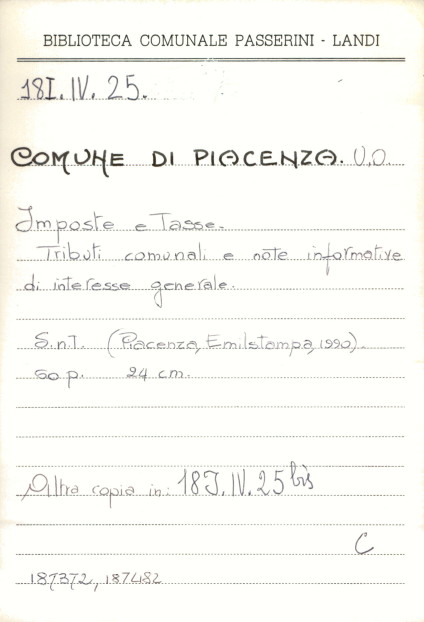 BIBLIOTECA COMUNALE PASSERINI - LANDI
18I.IV.25.
COMUNE DI PIACENZA. U.O.
Imposte e Tasse.
Tributi comunali e note informative
di interesse generale.
S.n.T. (Piacenza, Emilstampa, 1990).
50 p. 24 cm.
Altra copia in: 18I.IV.25 bis
C
187372, 187482